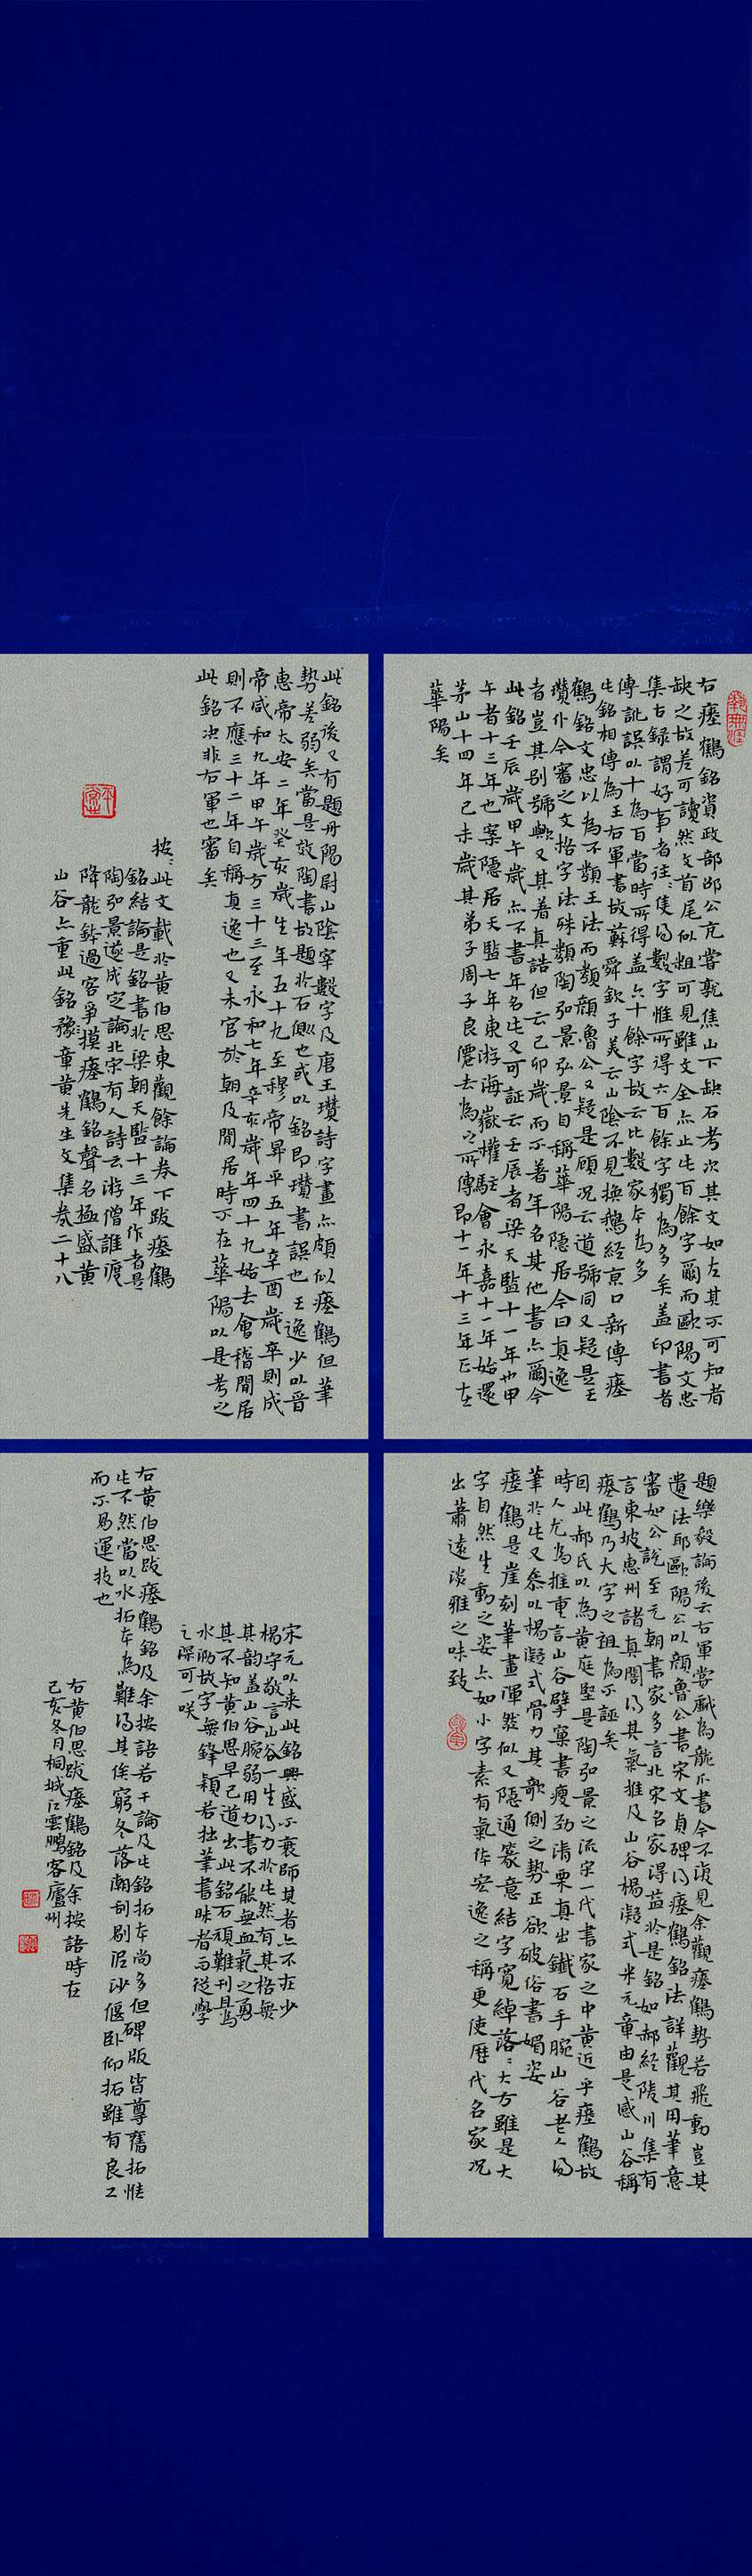 右瘞鶴銘資政部邵公亢嘗就焦山下缺石考次其文如左其不可知者
缺之故差可讀然文首尾似粗可見雖文全亦止此百餘字爾而歐陽文忠
集古錄謂好事者往〻隻得數字惟所得六百餘字獨為多矣蓋印書者
傳訛誤以十為百當時所得蓋六十餘字故云比數家本為多
此銘相傳為王右軍書故蘇舜欽子美云山陰不見換鵝經京口新傳瘞
鶴銘文忠以為不類王法而類顏魯公又疑是顧況云道號同又疑是王
瓚仆今審之文格字法殊類陶弘景弘景自稱華陽隱居今曰真逸
者豈其別號歟又其著真誥但云己卯歲而不著年名其他書亦爾今
此銘壬辰歲甲午歲亦不書年名此又可証云壬辰者梁天監十一年也甲
午者十三年也案隱居天監七年東游海嶽權駐會永嘉十一年始還
茅山十四年己未歲其弟子周子良僊去為之所傳即十一年十三年正在
華陽矣
此銘後又有題丹陽尉山陰宰數字及唐王瓚詩字畫亦頗似瘞鶴但筆
勢差弱矣當是效陶書故題於石側也或以銘即瓚書誤也王逸少以晉
惠帝太安二年癸亥歲生年五十九至穆帝昇平五年辛酉歲卒則成
帝咸和九年甲午歲方三十三至永和七年辛亥歲年四十九始去會稽閒居
則不應三十二年自稱真逸也又未官於朝及閒居時不在華陽以是考之
此銘決非右軍也審矣
按〻此文載於黃伯思東觀餘論卷下跋瘞鶴
銘結論是銘書於梁朝天監十三年作者是
陶弘景遂成定論北宋有人詩云游僧誰渡
降龍鉢過客爭摸瘞鶴銘聲名極盛黃
山谷亦重此銘豫章黃先生文集卷二十八
題樂毅論後云右軍嘗戲為龍爪書今不復見余觀瘞鶴勢若飛動豈其
遺法耶歐陽公以顏魯公書宋文貞碑得瘞鶴銘法詳觀其用筆意
審如公說至元朝書家多言北宋名家得益於是銘如郝經陵川集有
言東坡惠州諸真閣得其氣推及山谷楊凝式米元章由是感山谷稱
瘞鶴乃大字之祖為不誣矣
因此郝氏以為黃庭堅是陶弘景之流宋一代書家之中黃近乎瘞鶴故
時人尤為推重言山谷擘窠書瘦勁清栗真出鐵石手腕山谷老人得
筆於此又參以楊凝式骨力其欹側之勢正欲破俗書媚姿
瘞鶴是崖刻筆畫渾然似又隱通篆意結字寬綽落〻大方雖是大
字自然生動之姿亦如小字素有氣作宏逸之稱更使歷代名家況
出蕭遠淡雅之味致
宋元以來此銘興盛不衰師其者亦不在少
楊守敬言山谷一生得力於此然有其格無
其韵蓋山谷腕弱用力書不能無血氣之勇
其不知黃伯思早已道出此銘石頑難刊且為
水泐故字無鋒穎若拙筆書昧者而從學
之深可一咲
右黃伯思跋瘞鶴銘及余按語若干論及此銘拓本尚多但碑版皆尊舊拓惟
此不然當以水拓本為難得其俟窮冬落潮剔刷泥沙偃卧仰拓雖有良工
而不易運技也
右黃伯思跋瘞鶴銘及余按語時在
己亥冬月桐城江雲鵬客廬州